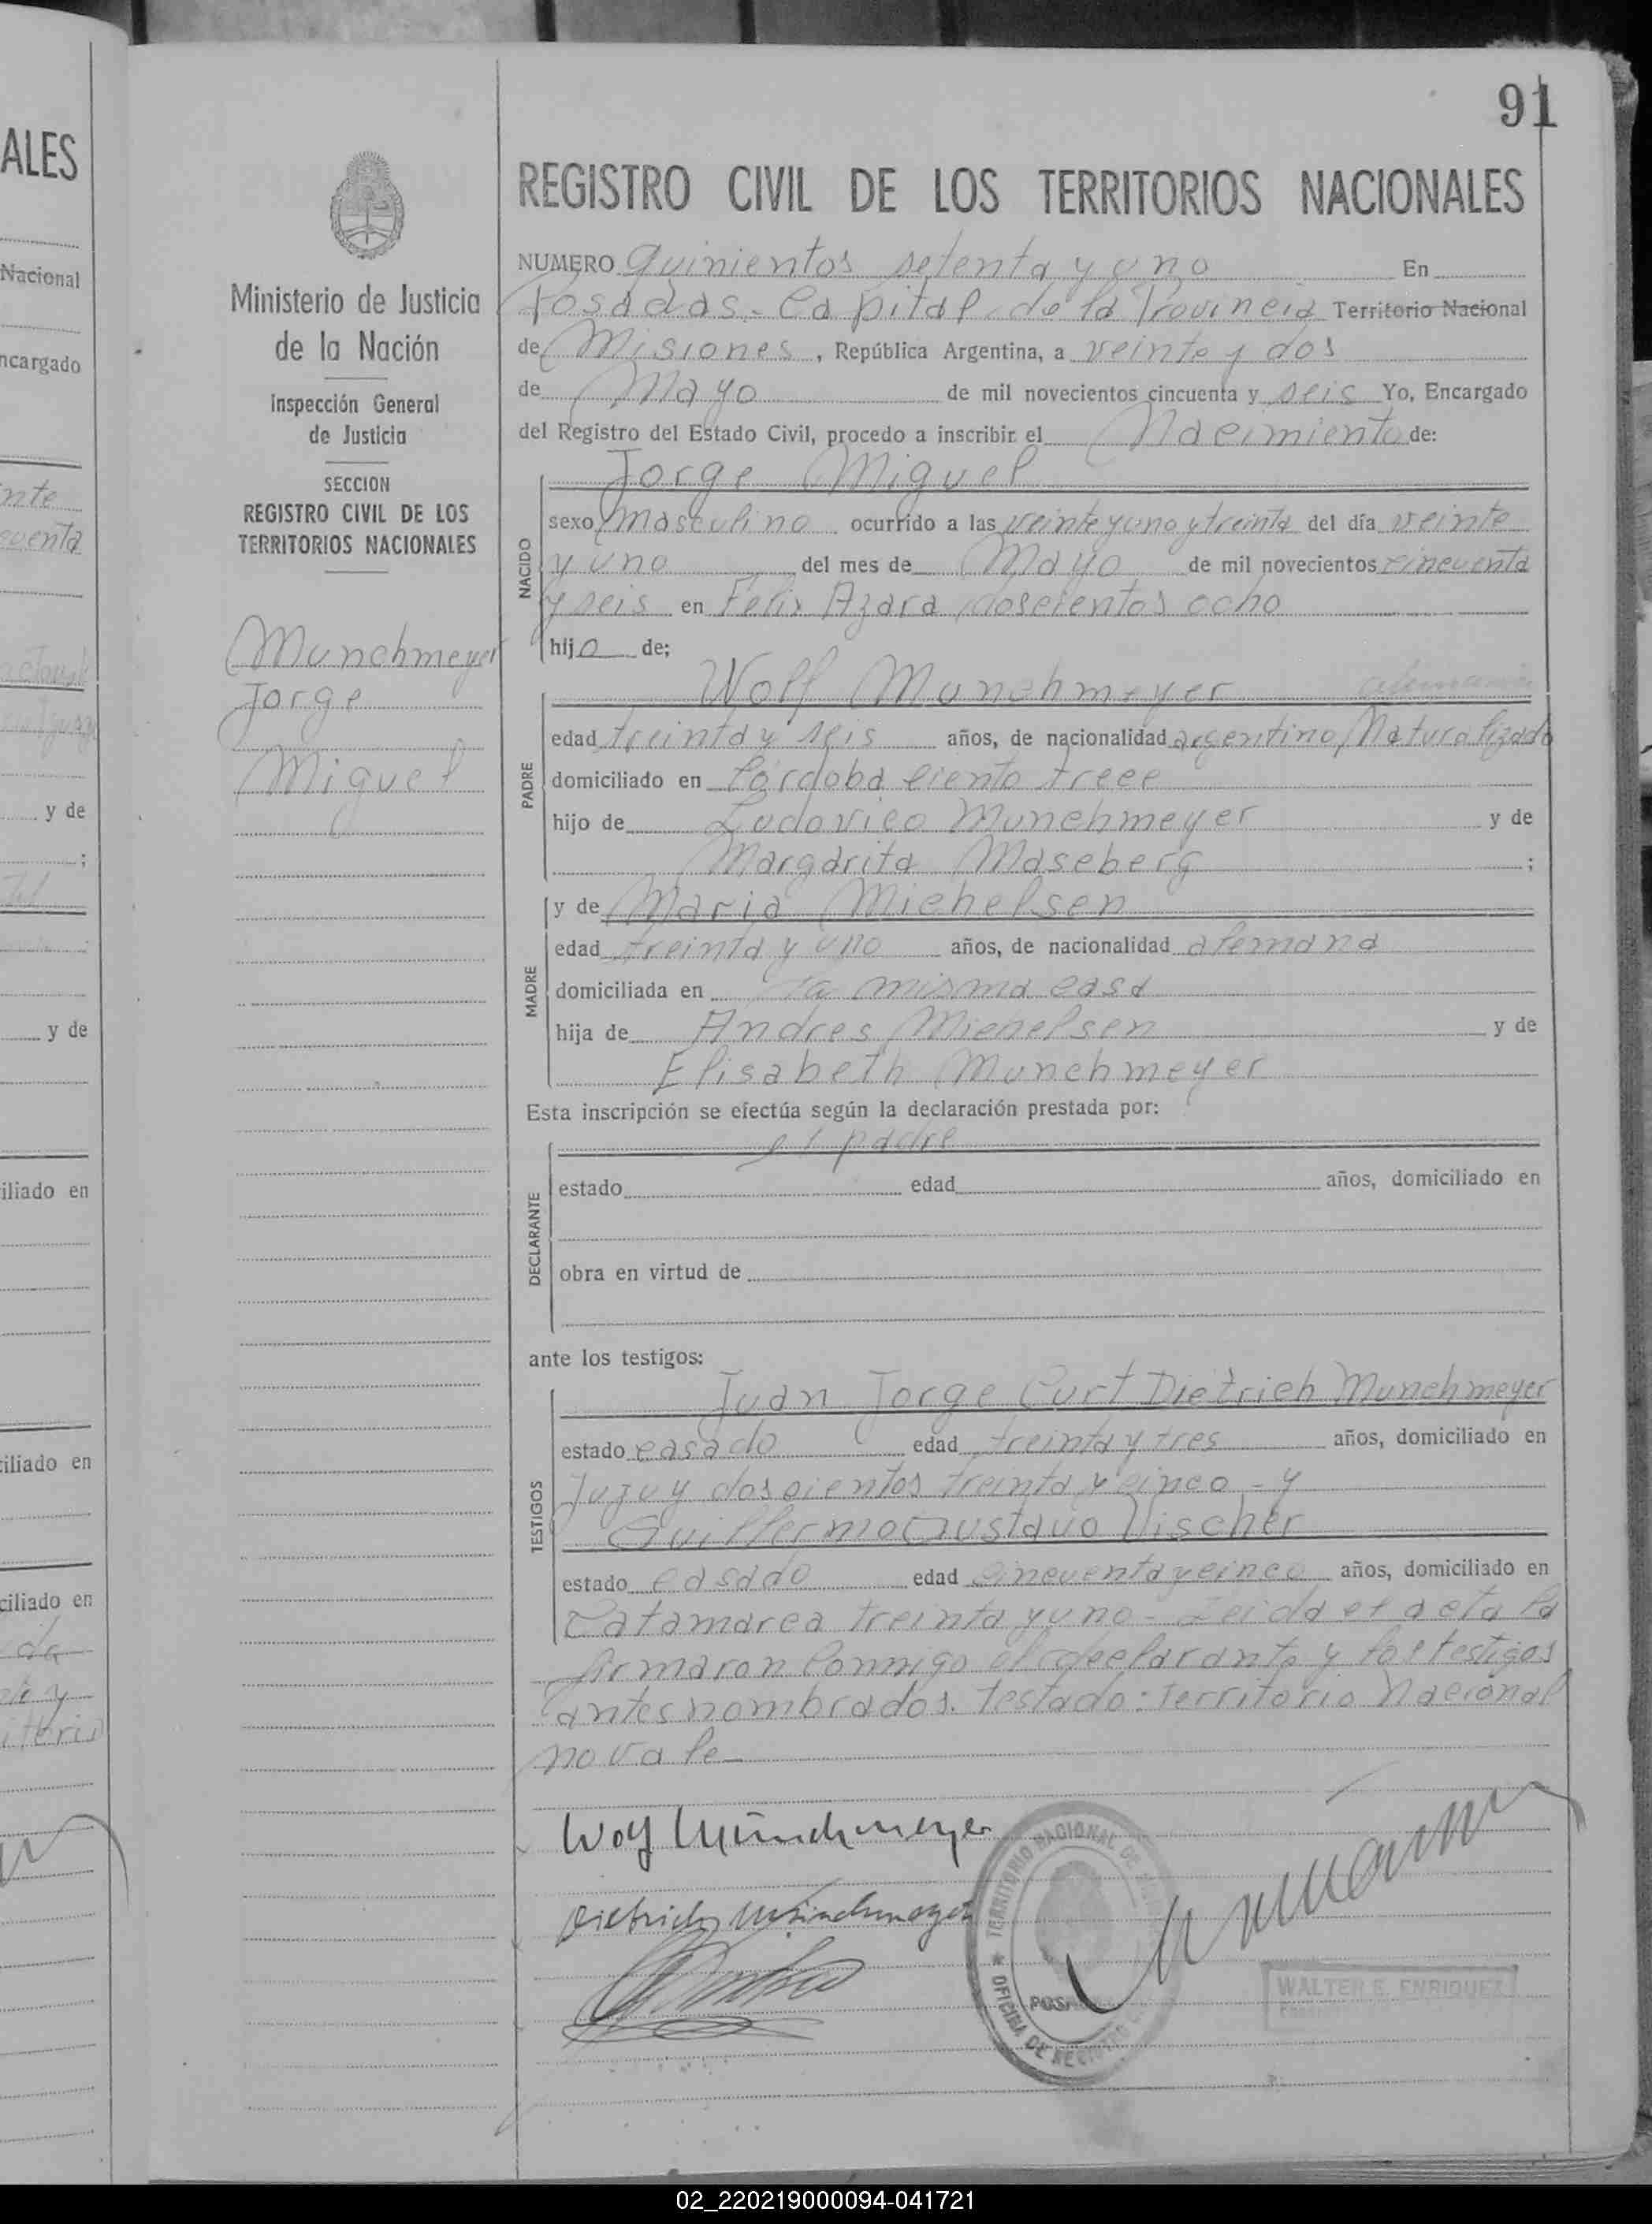 91
ALES
Nacional
ncargado
y de
;
y de
iliado en
iliado en
ciliado en
Ministerio de Justicia
de la Nación
Inspección General
de Justicia
SECCION
REGISTRO CIVIL DE LOS
TERRITORIOS NACIONALES
Munchmeyer
Jorge
Miguel
REGISTRO CIVIL DE LOS TERRITORIOS NACIONALES
NUMERO quinientos setenta y uno En
Posadas. Capital de la Provincia Territorio Nacional
de Misiones, República Argentina, a veinte y dos
de Mayo de mil novecientos cincuenta y seis Yo, Encargado
del Registro del Estado Civil, procedo a inscribir el Nacimiento de:
Jorge Miguel
NACIDO
sexo masculino ocurrido a las veinte y uno y treinta del día veinte
y uno del mes de Mayo de mil novecientos cincuenta
y seis en Felix Azara doscientos ocho
hijo de;
Wolf Munchmeyer
PADRE
edad treinta y seis años, de nacionalidad argentino Naturalizado
domiciliado en Córdoba ciento trece
hijo de Ludovico Munchmeyer y de
Margarita Maseberg ;
y de Maria Michelsen
MADRE
edad treinta y uno años, de nacionalidad alemana
domiciliada en la misma casa
hija de Andres Michelsen y de
Elisabeth Munchmeyer
Esta inscripción se efectúa según la declaración prestada por:
el padre
DECLARANTE
estado edad años, domiciliado en
obra en virtud de
ante los testigos:
Juan Jorge Curt Dietrich Munchmeyer
TESTIGOS
estado casado edad treinta y tres años, domiciliado en
Jujuy doscientos treinta y cinco - y
Guillermo Gustavo Vischer
estado casado edad cincuenta y cinco años, domiciliado en
Catamarca treinta y uno - Leida el acta la
firmaron conmigo el declarante y los testigos
antes nombrados. Testado: Territorio Nacional
no vale
Wolf Münchmeyer
Dietrich Münchmeyer
TERRITORIO NACIONAL DE
OFICINA DE
WALTER E. ENRIQUEZ
02_220219000094-041721